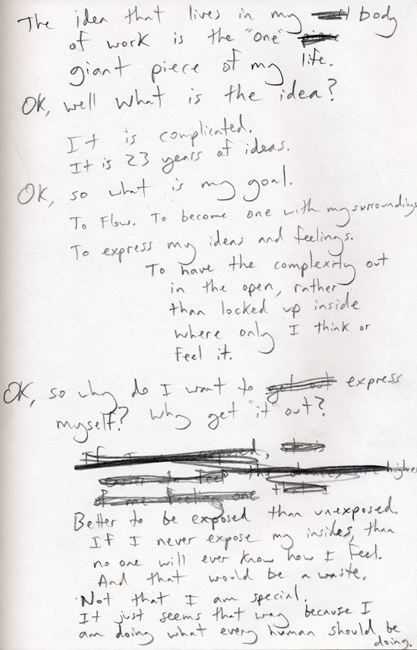 The idea that lives in my body
of work is the "one"
giant piece of my life.
OK, well what is the idea?
It is complicated.
It is 23 years of ideas.
OK, so what is my goal.
To Flow. To become one with my surroundings
To express my ideas and feelings.
To have the complexity out
in the open, rather
than locked up inside
where only I think or
feel it.
OK, so why do I want to get out express
myself? Why get "it" out?
Better to be exposed than unexposed.
If I never expose my insides, than
no one will ever know how I feel.
And that would be a waste.
Not that I am special.
It just seems that way because I
am doing what every human should be
doing.